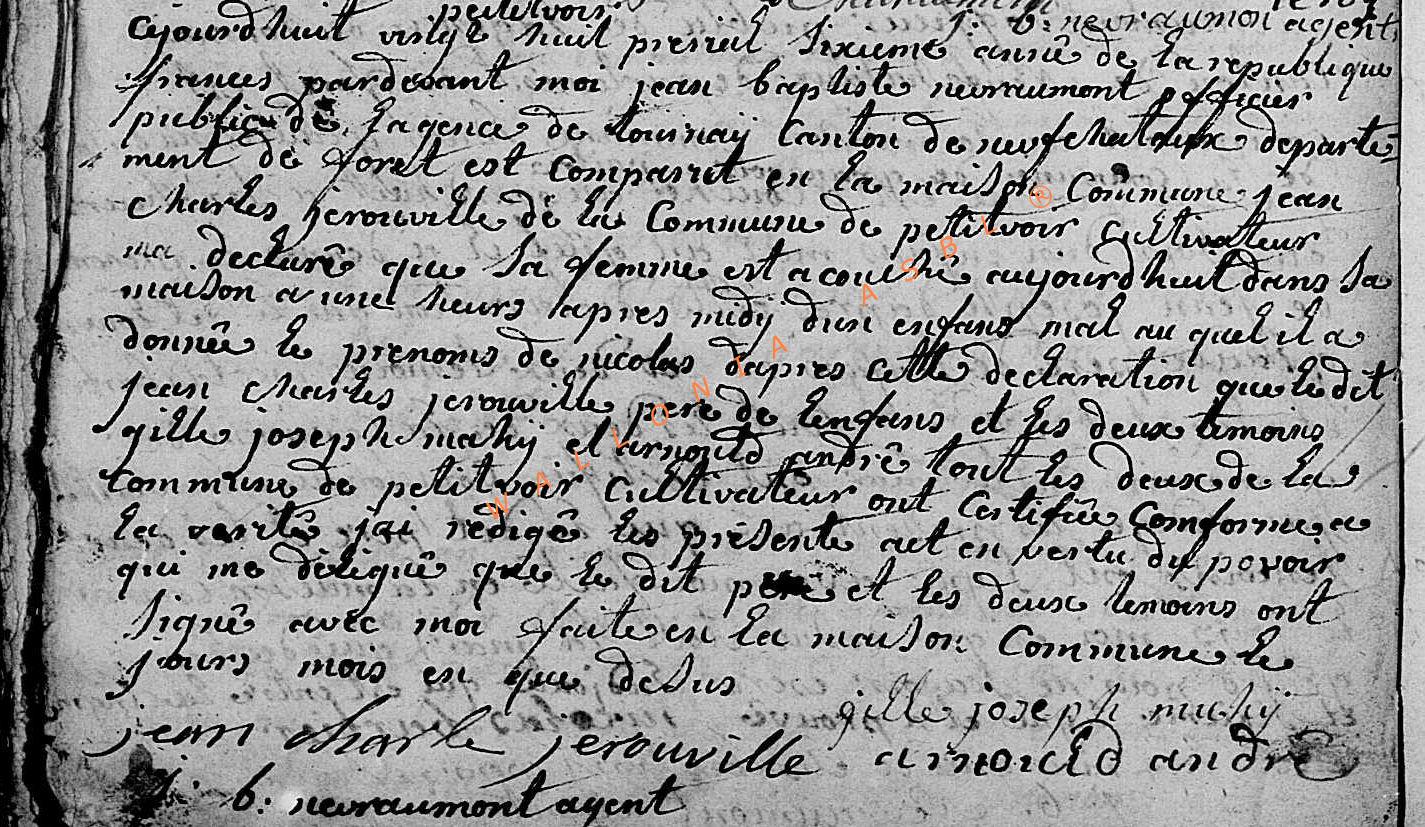 petitvoir
j: b: nevraumon agent
cejourdhuit vingt huit preriel sixieme année de la republique
francés pardevant moi jean baptiste nevraumont officier
public de lagence de tournaÿ canton de neufchateaux departe=
ment de foret est comparut en la maison commune jean
charles jerouville de la commune de petitvoir cultivateur
ma declarê que sa femme est acouchê aujourdhuit dans sa
maison a une heurs apres midÿ dun enfans mal au quel il a
donnêe le prenoms de nicolas dapres cette declaration que le dit
jean charles jerouville pere de lenfans et les deux temoins
gille joseph mahÿ et arnould andrê tout les deux de la
commune de petitvoir cultivateur ont certifiêe comforme a
la veritê jai rêdigê les prêsente act en vertu du povoir
qui me dêliguê que le dit pere et les deux temoins ont
signê avec moi faite en la maison commune le
jours mois en que desus
gille joseph mahÿ
jean charle jerouville arnould andre
j: b: nevraumont agent
WALLONIA ASBL ®